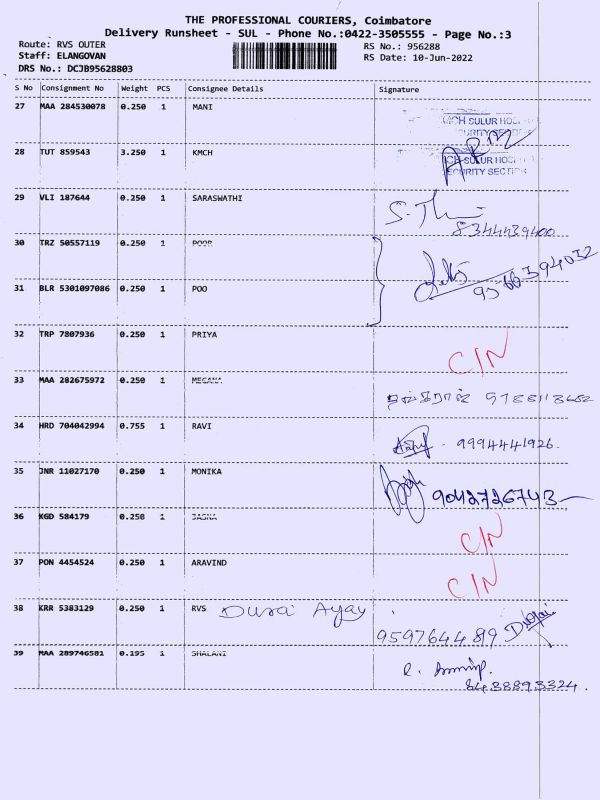 THE PROFESSIONAL COURIERS, Coimbatore
Delivery Runsheet - SUL - Phone No.:0422-3505555 - Page No.:3
Route: RVS OUTER
Staff: ELANGOVAN
DRS No.: DCJB95628803
RS No.: 956288
RS Date: 10-Jun-2022
S No Consignment No Weight PCS Consignee Details Signature
27 MAA 284530078 0.250 1 MANI
28 TUT 859543 3.250 1 KMCH
29 VLI 187644 0.250 1 SARASWATHI
8344439400
30 TRZ 50557119 0.250 1 POOR
31 BLR 5301097086 0.250 1 POO
32 TRP 7807936 0.250 1 PRIYA C/N
33 MAA 282675972 0.250 1 MEGANA
34 HRD 704042994 0.755 1 RAVI 9994441926.
35 JNR 11027170 0.250 1 MONIKA 9042726743
36 KGD 584179 0.250 1 JASNA C/N
37 PON 4454524 0.250 1 ARAVIND C/N
38 KRR 5383129 0.250 1 RVS Durai Ajay
39 MAA 289746581 0.195 1 SHALANI
8438893324.